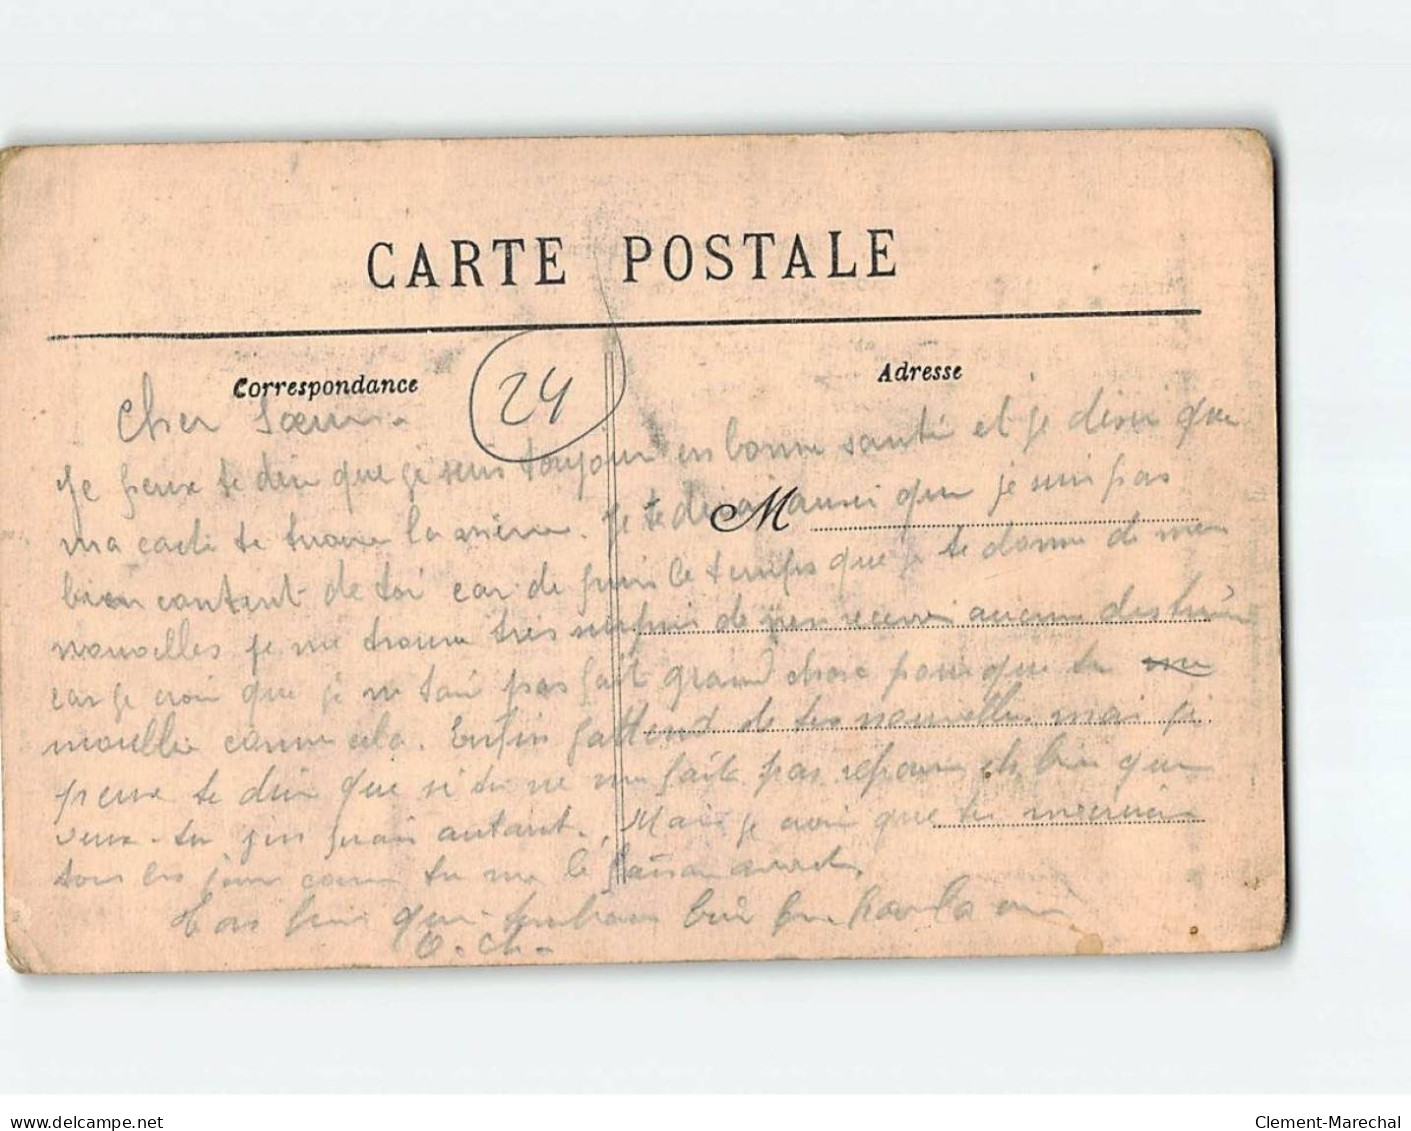 CARTE POSTALE
Correspondance
24
Adresse
Cher Sœur.
Je peux te dire que je suis toujour en bonne santé et je désir que
ma carte te trouve la même. Je te dirai aussi que je suis pas
M
bien content de toi car de puis le temps que je te donne de mes
nouvelles je me trouve très surpris de rien recevoir aucune des tiennes
car je crois que je ne tai pas fait grand chose pour que tu me
m'oublie comme cela. Enfin j'attend de tes nouvelles mai je
peux te dire que si tu ne me faite pas reponse, eh bien que
veux-tu j'en ferai autant. Mais je croi que tu
tous les jour comme tu me le
Ton qui bien
C. Ch.
delcampe.net
Clement-Marechal